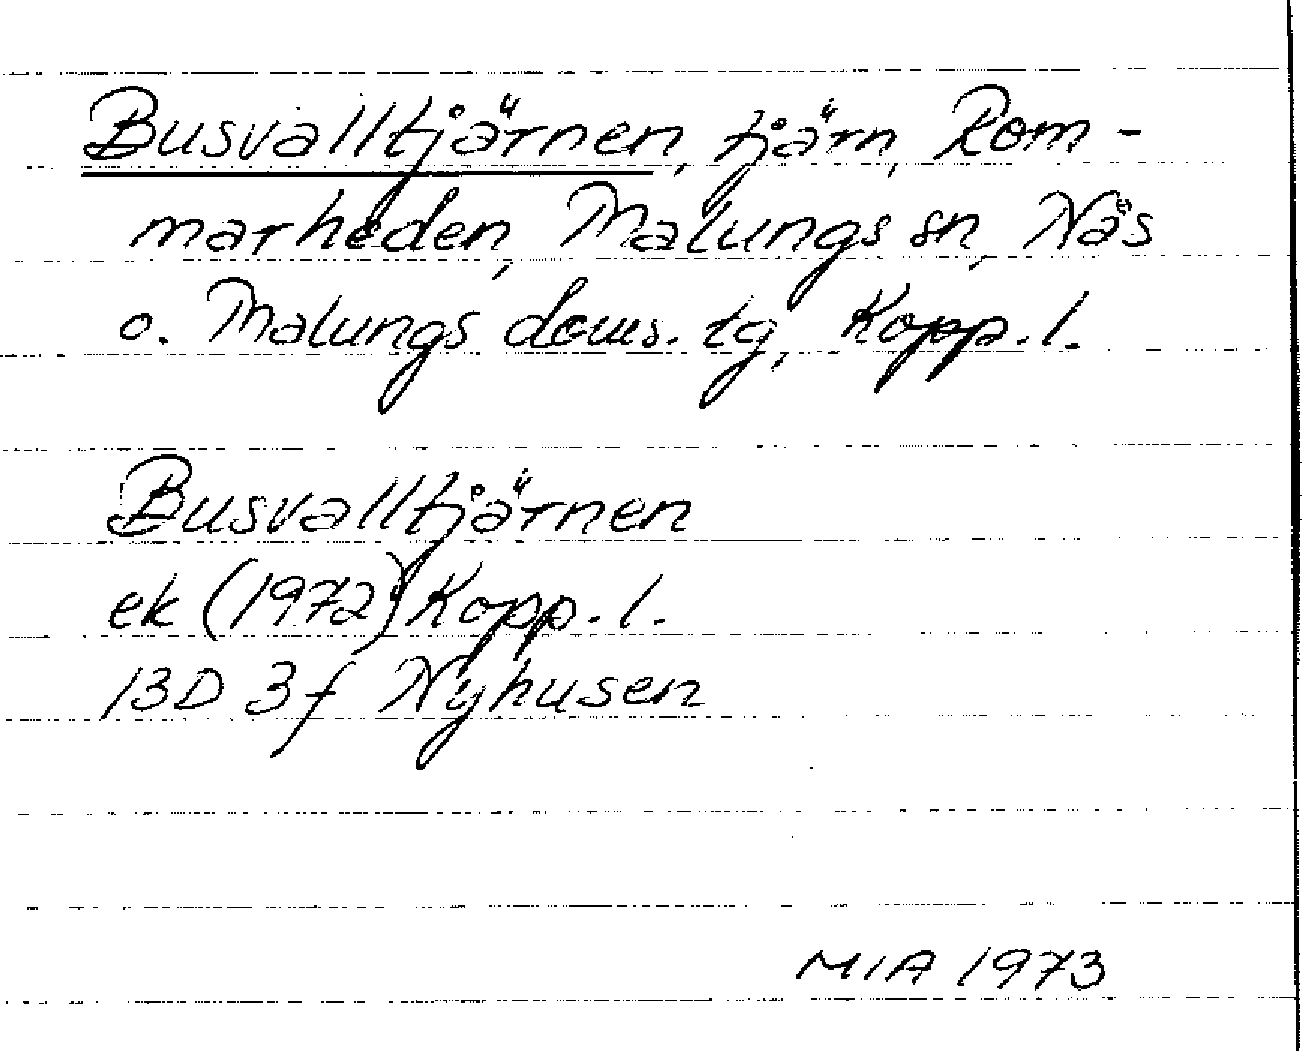 Busvalltjärnen, tjärn, Rom-
marheden, Malungs sn, Näs
o. Malungs doms. tg, Kopp. l.
Busvalltjärnen
ek (1972) Kopp. l.
13D 3f Nyhusen
MIA 1973